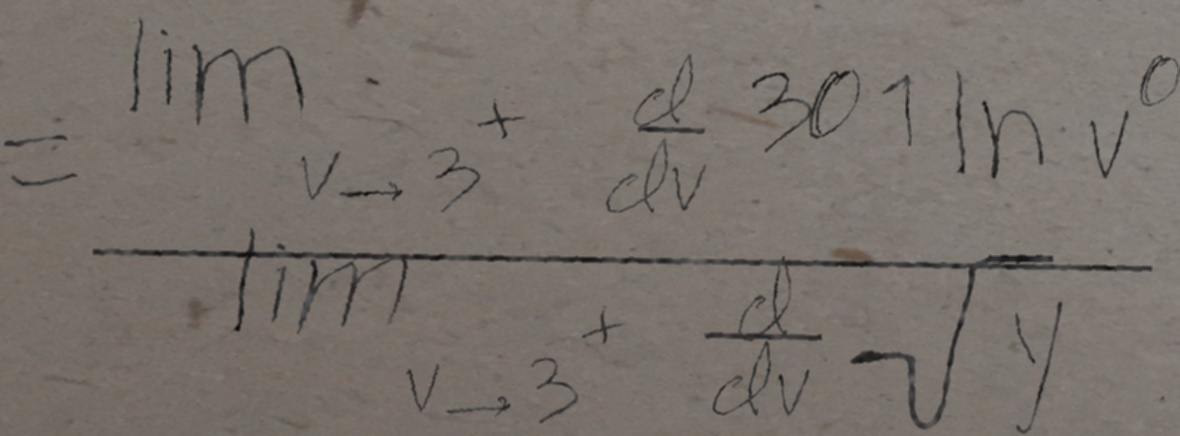 = \frac{\lim_{v \to 3^+} \frac{d}{dv} 301 \ln v^0}{\lim_{v \to 3^+} \frac{d}{dv} \sqrt{y}}